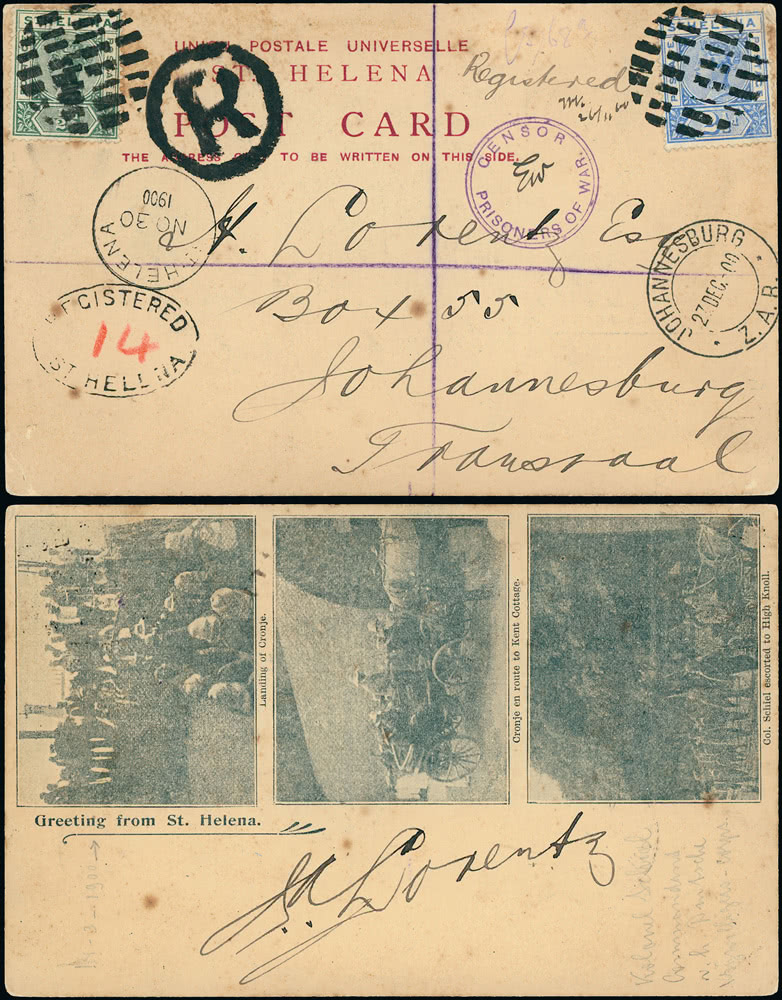 ST. HELENA
ST. HELENA
UNION POSTALE UNIVERSELLE
ST. HELENA
POST CARD
THE ADDRESS ONLY TO BE WRITTEN ON THIS SIDE.
R
Registered
CENSOR
PRISONERS OF WAR.
ST. HELENA
NO 30
1900
Lorentz Esq
Box 55
Johannesburg
Transvaal
REGISTERED
14
ST HELENA
JOHANNESBURG
27 DEC. 00
Z.A.R.
Landing of Cronje.
Cronje en route to Kent Cottage.
Col. Schiel escorted to High Knoll.
Greeting from St. Helena.
Lorentz